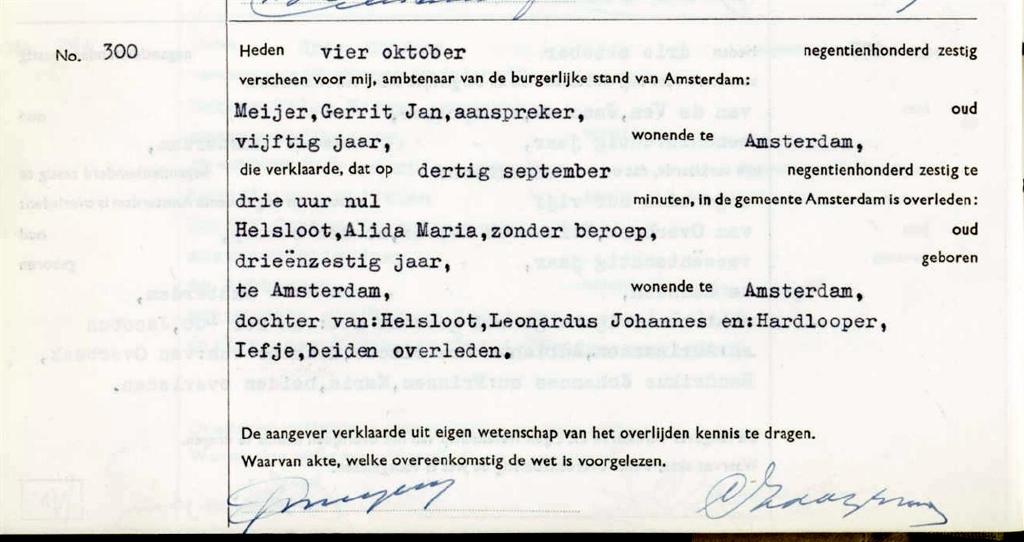 No. 300
Heden vier oktober negentienhonderd zestig
verscheen voor mij, ambtenaar van de burgerlijke stand van Amsterdam:
Meijer,Gerrit Jan,aanspreker, oud
vijftig jaar, wonende te Amsterdam,
die verklaarde, dat op dertig september negentienhonderd zestig te
drie uur nul minuten, in de gemeente Amsterdam is overleden:
Helsloot,Alida Maria,zonder beroep, oud
drieënzestig jaar, geboren
te Amsterdam, wonende te Amsterdam,
dochter van:Helsloot,Leonardus Johannes en:Hardlooper,
Iefje,beiden overleden.
De aangever verklaarde uit eigen wetenschap van het overlijden kennis te dragen.
Waarvan akte, welke overeenkomstig de wet is voorgelezen.